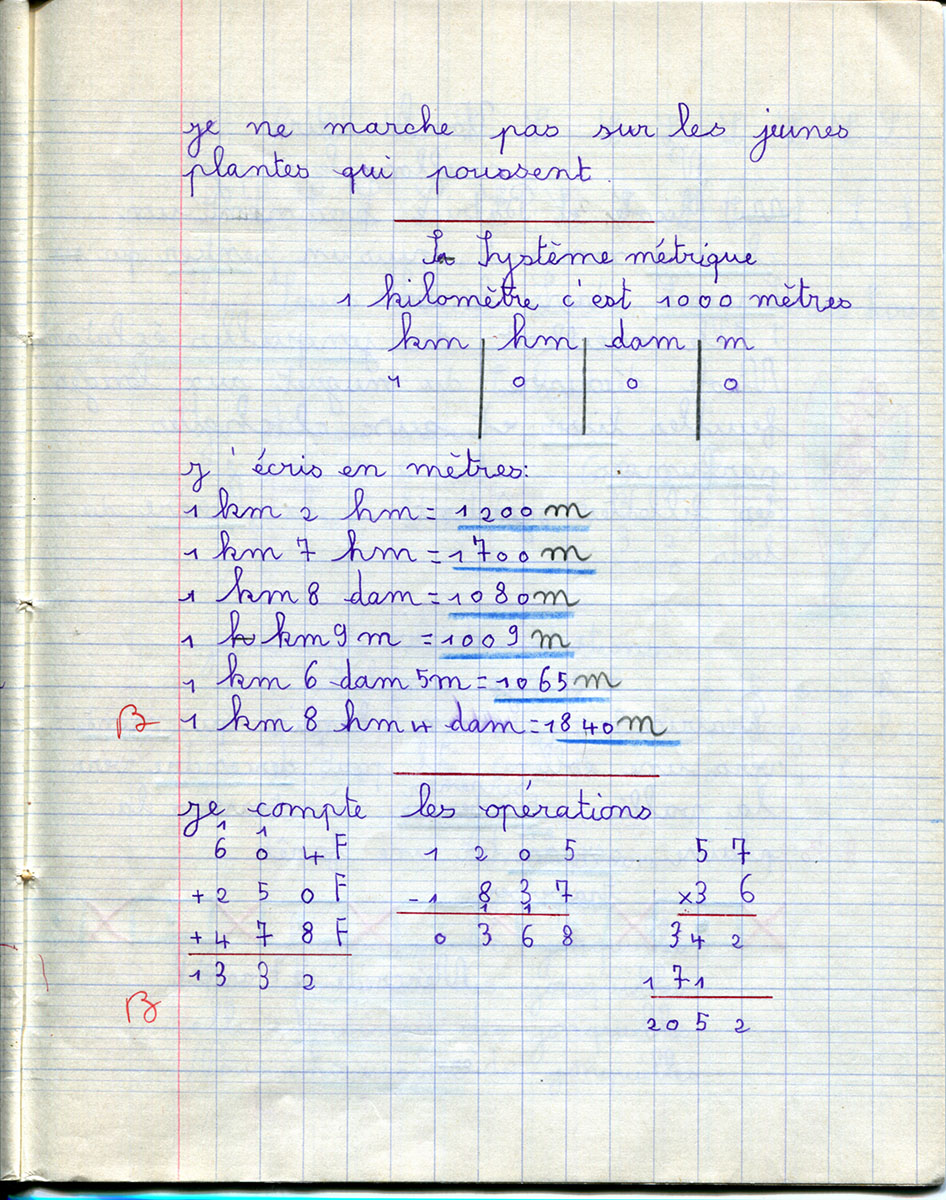 je ne marche pas sur les jeunes
plantes qui poussent.
Système métrique
1 kilomètre c'est 1000 mètres
km hm dam m
1 0 0 0
j'écris en mètres:
1 km 2 hm = 1200 m
1 km 7 hm = 1700 m
1 km 8 dam = 1080 m
1 km 9 m = 1009 m
1 km 6 dam 5m = 1065 m
B 1 km 8 hm 4 dam = 1840 m
je compte les opérations
1 1
6 0 4 F 1 2 0 5 5 7
+ 2 5 0 F - 1 8 3 7 x 3 6
1 1
+ 4 7 8 F 0 3 6 8 3 4 2
1 3 3 2 1 7 1
B 2 0 5 2